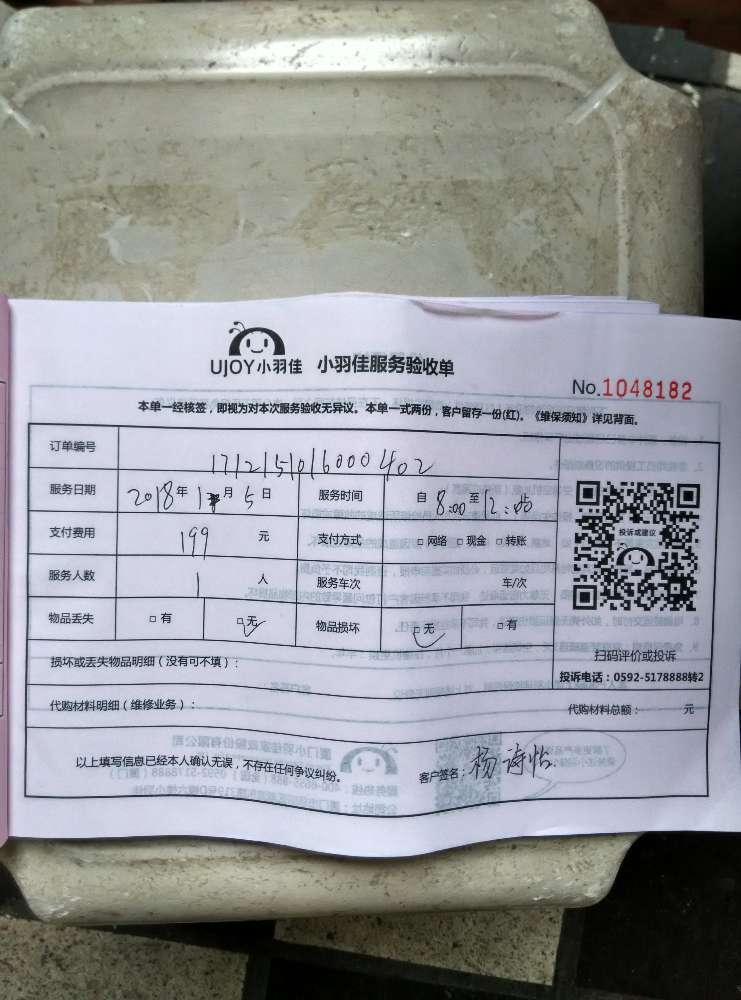 UJOY小羽佳 小羽佳服务验收单
No.1048182
本单一经核签，即视为对本次服务验收无异议。本单一式两份，客户留存一份(红)。《维保须知》详见背面。
订单编号 171215016000402
服务日期 2018年1月5日 服务时间 自8:00至12:00
支付费用 199 元 支付方式 □网络 □现金 □转账
服务人数 1 人 服务车次 车/次
物品丢失 □有 □无 物品损坏 □无 □有
投诉或建议
扫码评价或投诉
投诉电话：0592-5178888转2
损坏或丢失物品明细（没有可不填）：
代购材料明细（维修业务）： 代购材料总额： 元
以上填写信息已经本人确认无误，不存在任何争议纠纷。 客户签名：杨诗怡